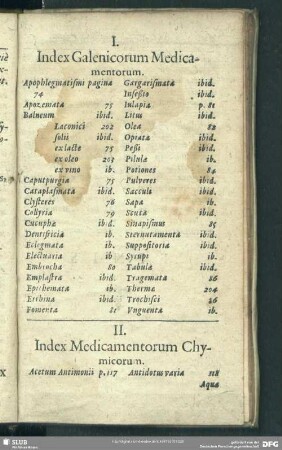 I.
Index Galenicorum Medica-
mentorum.
Apophlegmatismi pagina
74
Apozemata 75
Balneum ibid.
Laconici 202
solii ibid.
ex lacte 75
ex oleo 203
ex vino ib.
Caputpurgia 75
Cataplasmata ibid.
Clysteres 76
Collyria 79
Cucuphæ ibid.
Dentifricia ib.
Eclegmata ib.
Electuaria ib
Embrocha 80
Emplastra ibid.
Epithemata ib.
Errhina ibid.
Fomenta 81
Gargarismata ibid.
Insessio ibid.
Iulapia p. 81
Litus ibid.
Olea 82
Opiata ibid.
Pessi ibid.
Pilulæ ib.
Potiones 84
Pulveres ibid.
Sacculi ibid.
Sapa ib.
Scuta ibid.
Sinapismus 85
Sternutamenta ibid.
Suppositoria ibid.
Syrupi ib.
Tabulæ ibid.
Tragemata 86
Thermæ 204
Trochisci 86
Vnguenta ib.
II.
Index Medicamentorum Chy-
micorum.
Acetum Antimonii p. 117
Antidotus varia 118
Aqua
SLUB
DFG